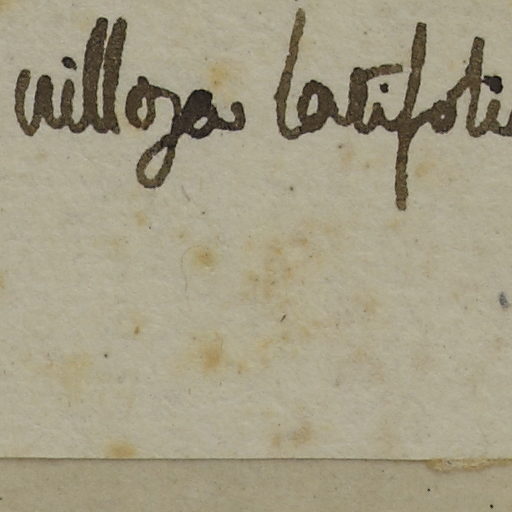 villoza latifolia